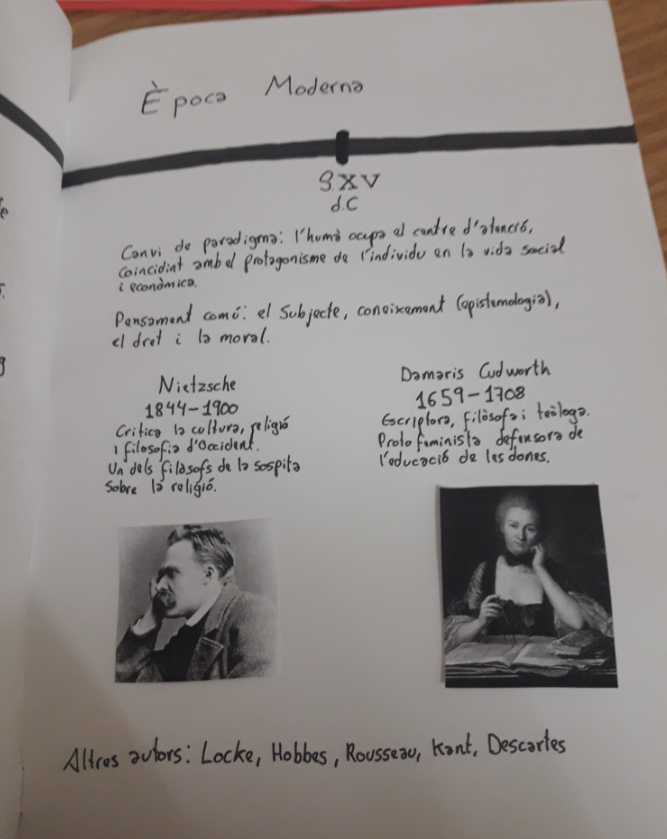 Època Moderna
S.XV
d.C
Canvi de paradigma: l'humà ocupa el centre d'atenció,
coincidint amb el protagonisme de l'individu en la vida social
i econòmica.
Pensament comú: el Subjecte, coneixement (epistemologia),
el dret i la moral.
Nietzsche
1844-1900
Critica la cultura, religió
i filosofia d'Occident.
Un dels filòsofs de la sospita
sobre la religió.
Damaris Cudworth
1659-1708
Escriptora, filòsofa i teòloga.
Proto feminista defensora de
l'educació de les dones.
Altres autors: Locke, Hobbes, Rousseau, Kant, Descartes